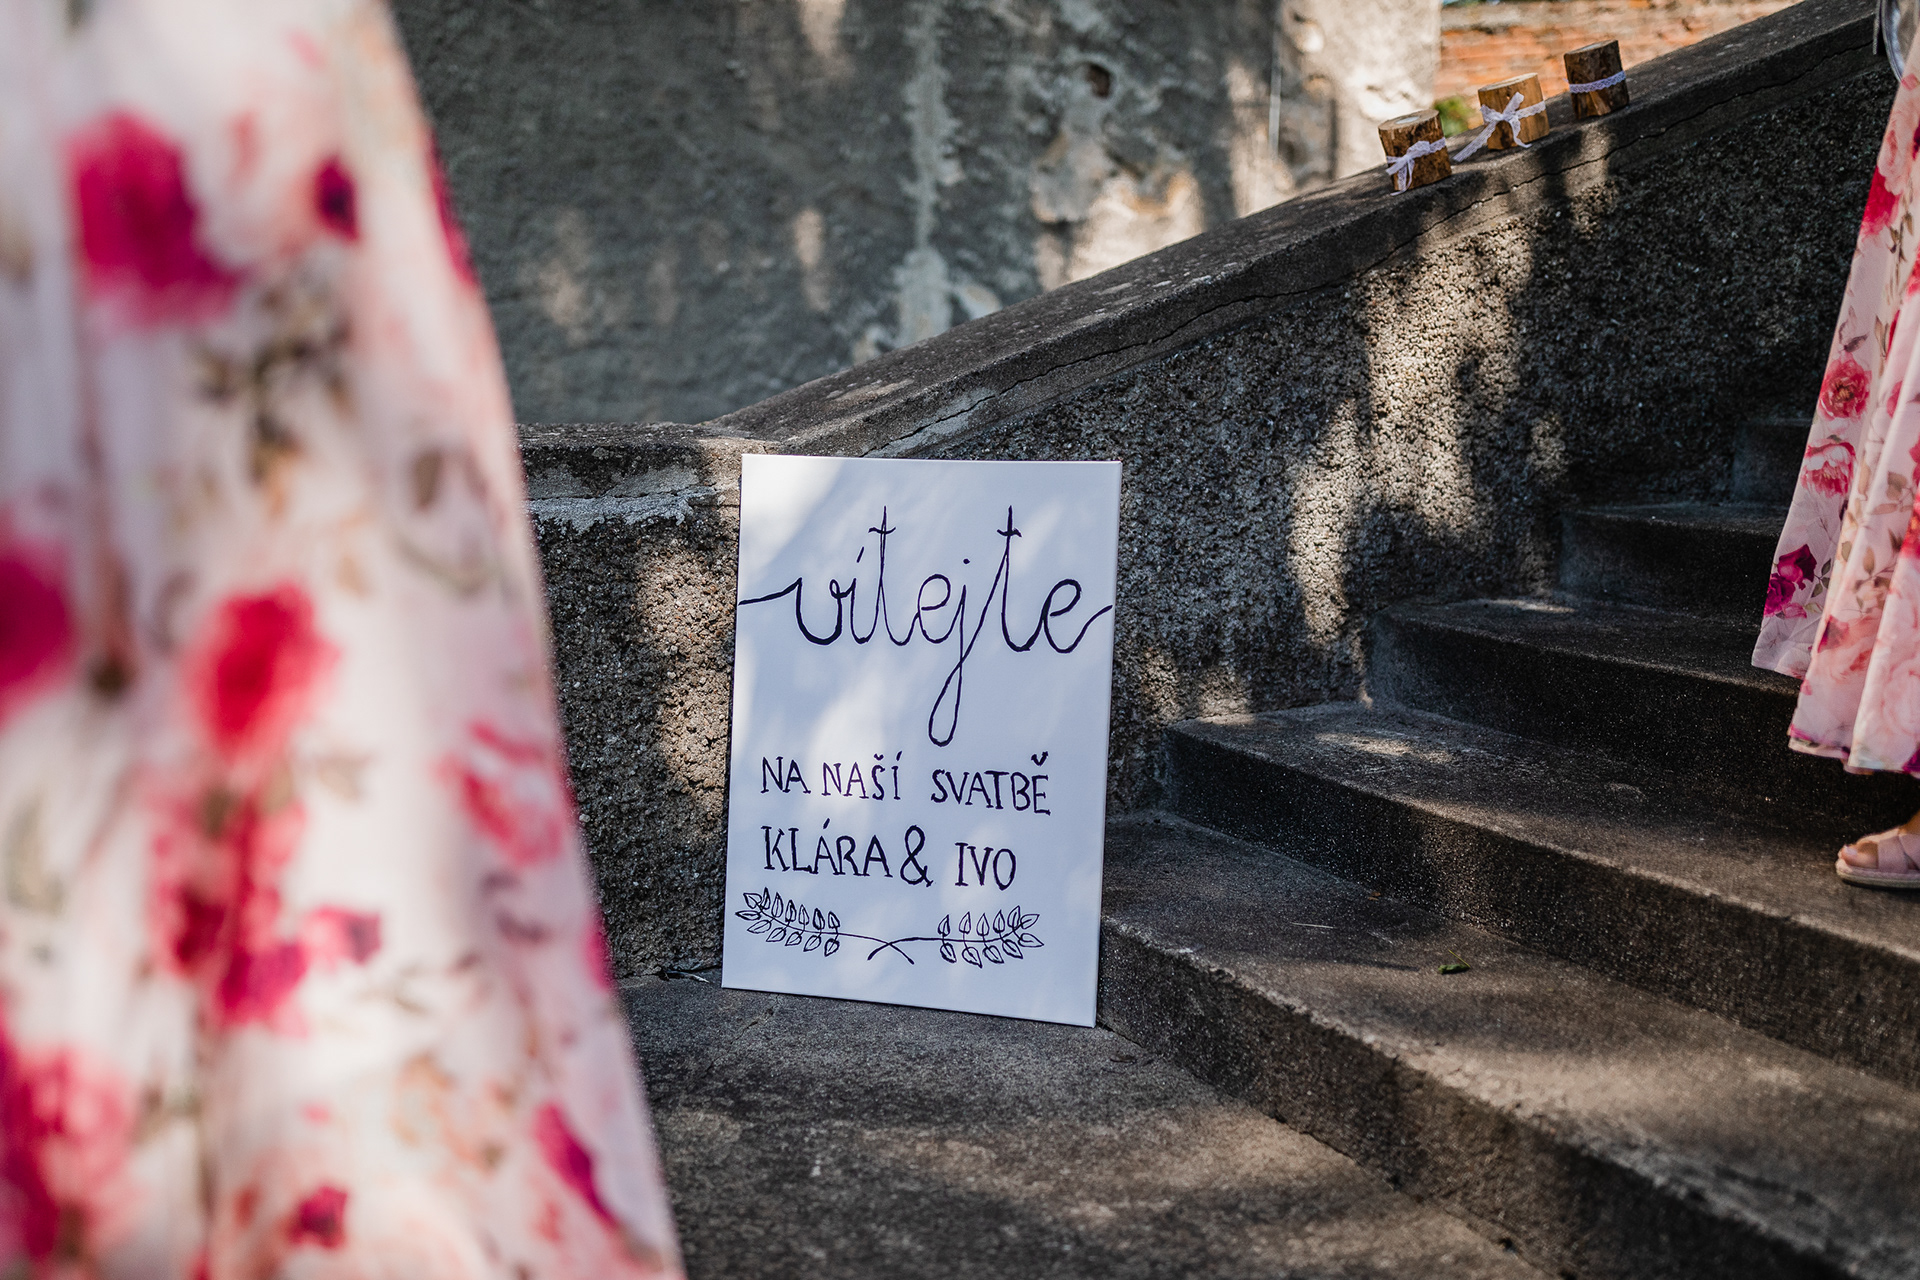 vítejte
NA NAŠÍ SVATBĚ
KLÁRA & IVO